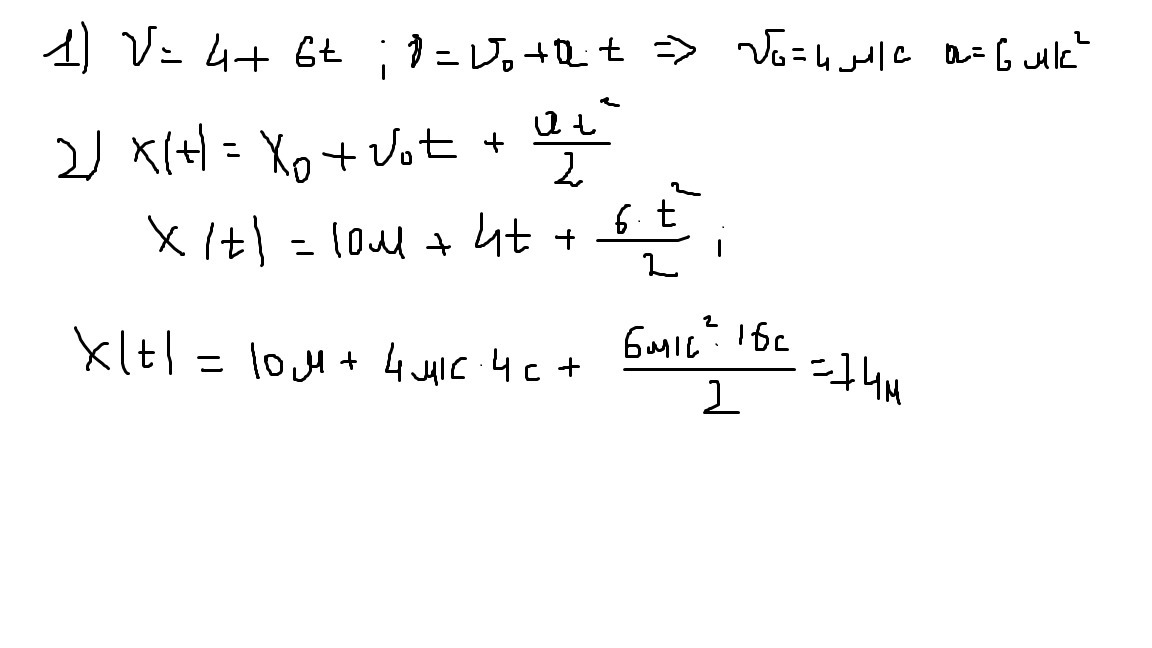 1) v = 4 + 6t ; v = v₀ + a·t ⇒ v₀ = 4 м/с a = 6 м/с²
2) x(t) = x₀ + v₀t + at²/2
x(t) = 10м + 4t + 6·t²/2 ;
x(t) = 10м + 4м/с·4с + 6м/с²·16с/2 = 74м